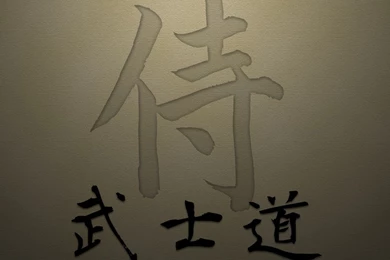 侍
武士道